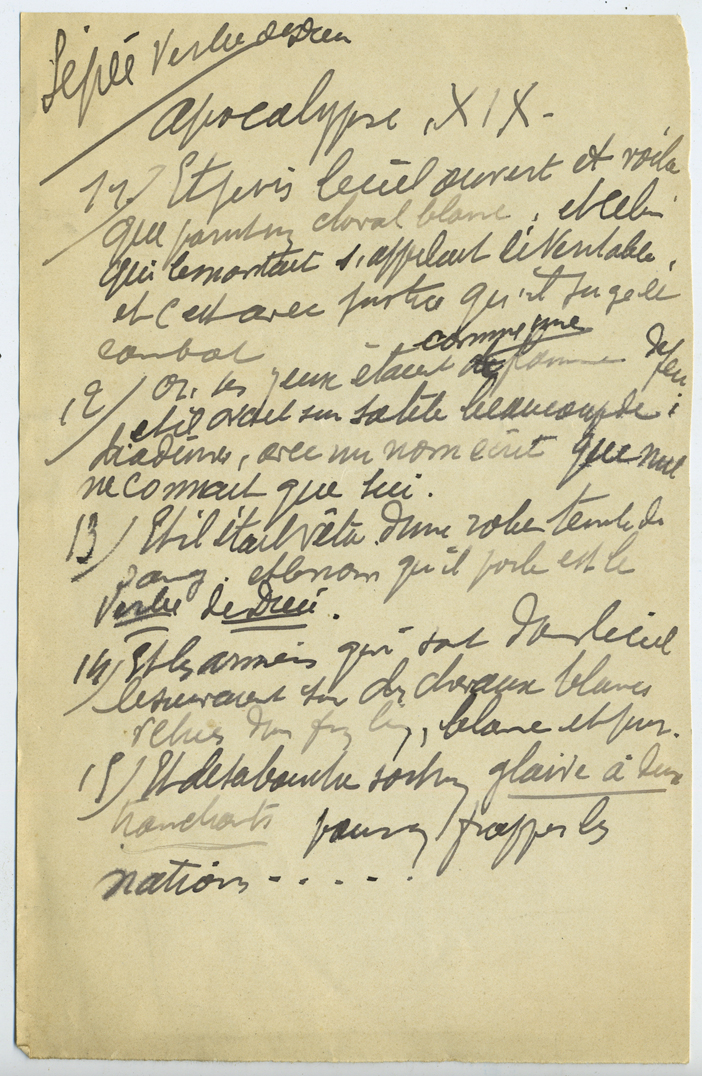 L'épée Verbe de Dieu
Apocalypse, XIX-
11/ Et je vis le ciel ouvert et voila
que parut un cheval blanc, et celui
qui le montait s'appelait le Véritable,
et c'est avec justice qu'il juge et
combat
comme une
12/ Or, ses yeux étaient flamme de feu
et il avait sur sa tête beaucoup de
diadèmes, avec un nom écrit que nul
ne connait que lui.
13/ Et il était vêtu d'une robe teinte de
sang. et le nom qu'il porte est le
Verbe de Dieu.
14/ Et les armées qui sont dans le ciel
le suivaient sur des chevaux blancs
vêtues d'un fin lin, blanc et pur.
15/ Et de sa bouche sort un glaive à deux
tranchants pour en frapper les
nations - . . - .